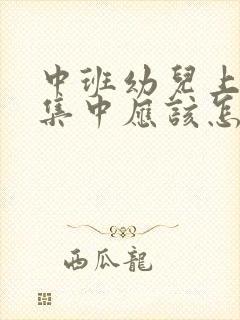 中班幼兒上
集中應該怎
西瓜龍